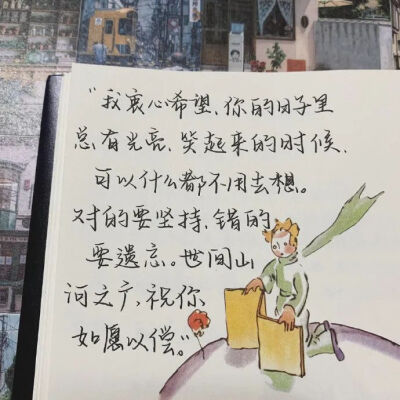 “我衷心希望，你的日子里
总有光亮，笑起来的时候，
可以什么都不用去想。
对的要坚持，错的
要遗忘。世间山
河之广，祝你
如愿以偿。”